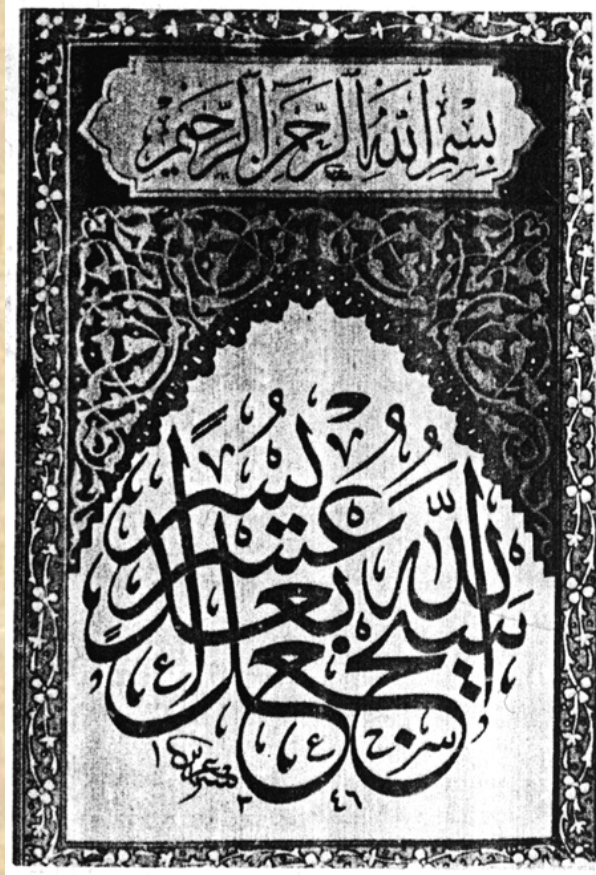 بِسْمِ ٱللّٰهِ ٱلرَّحْمٰنِ ٱلرَّحِيْمِ
سَيَجْعَلُ اللّٰهُ بَعْدَ عُسْرٍ يُسْرًا
١٣٤٦